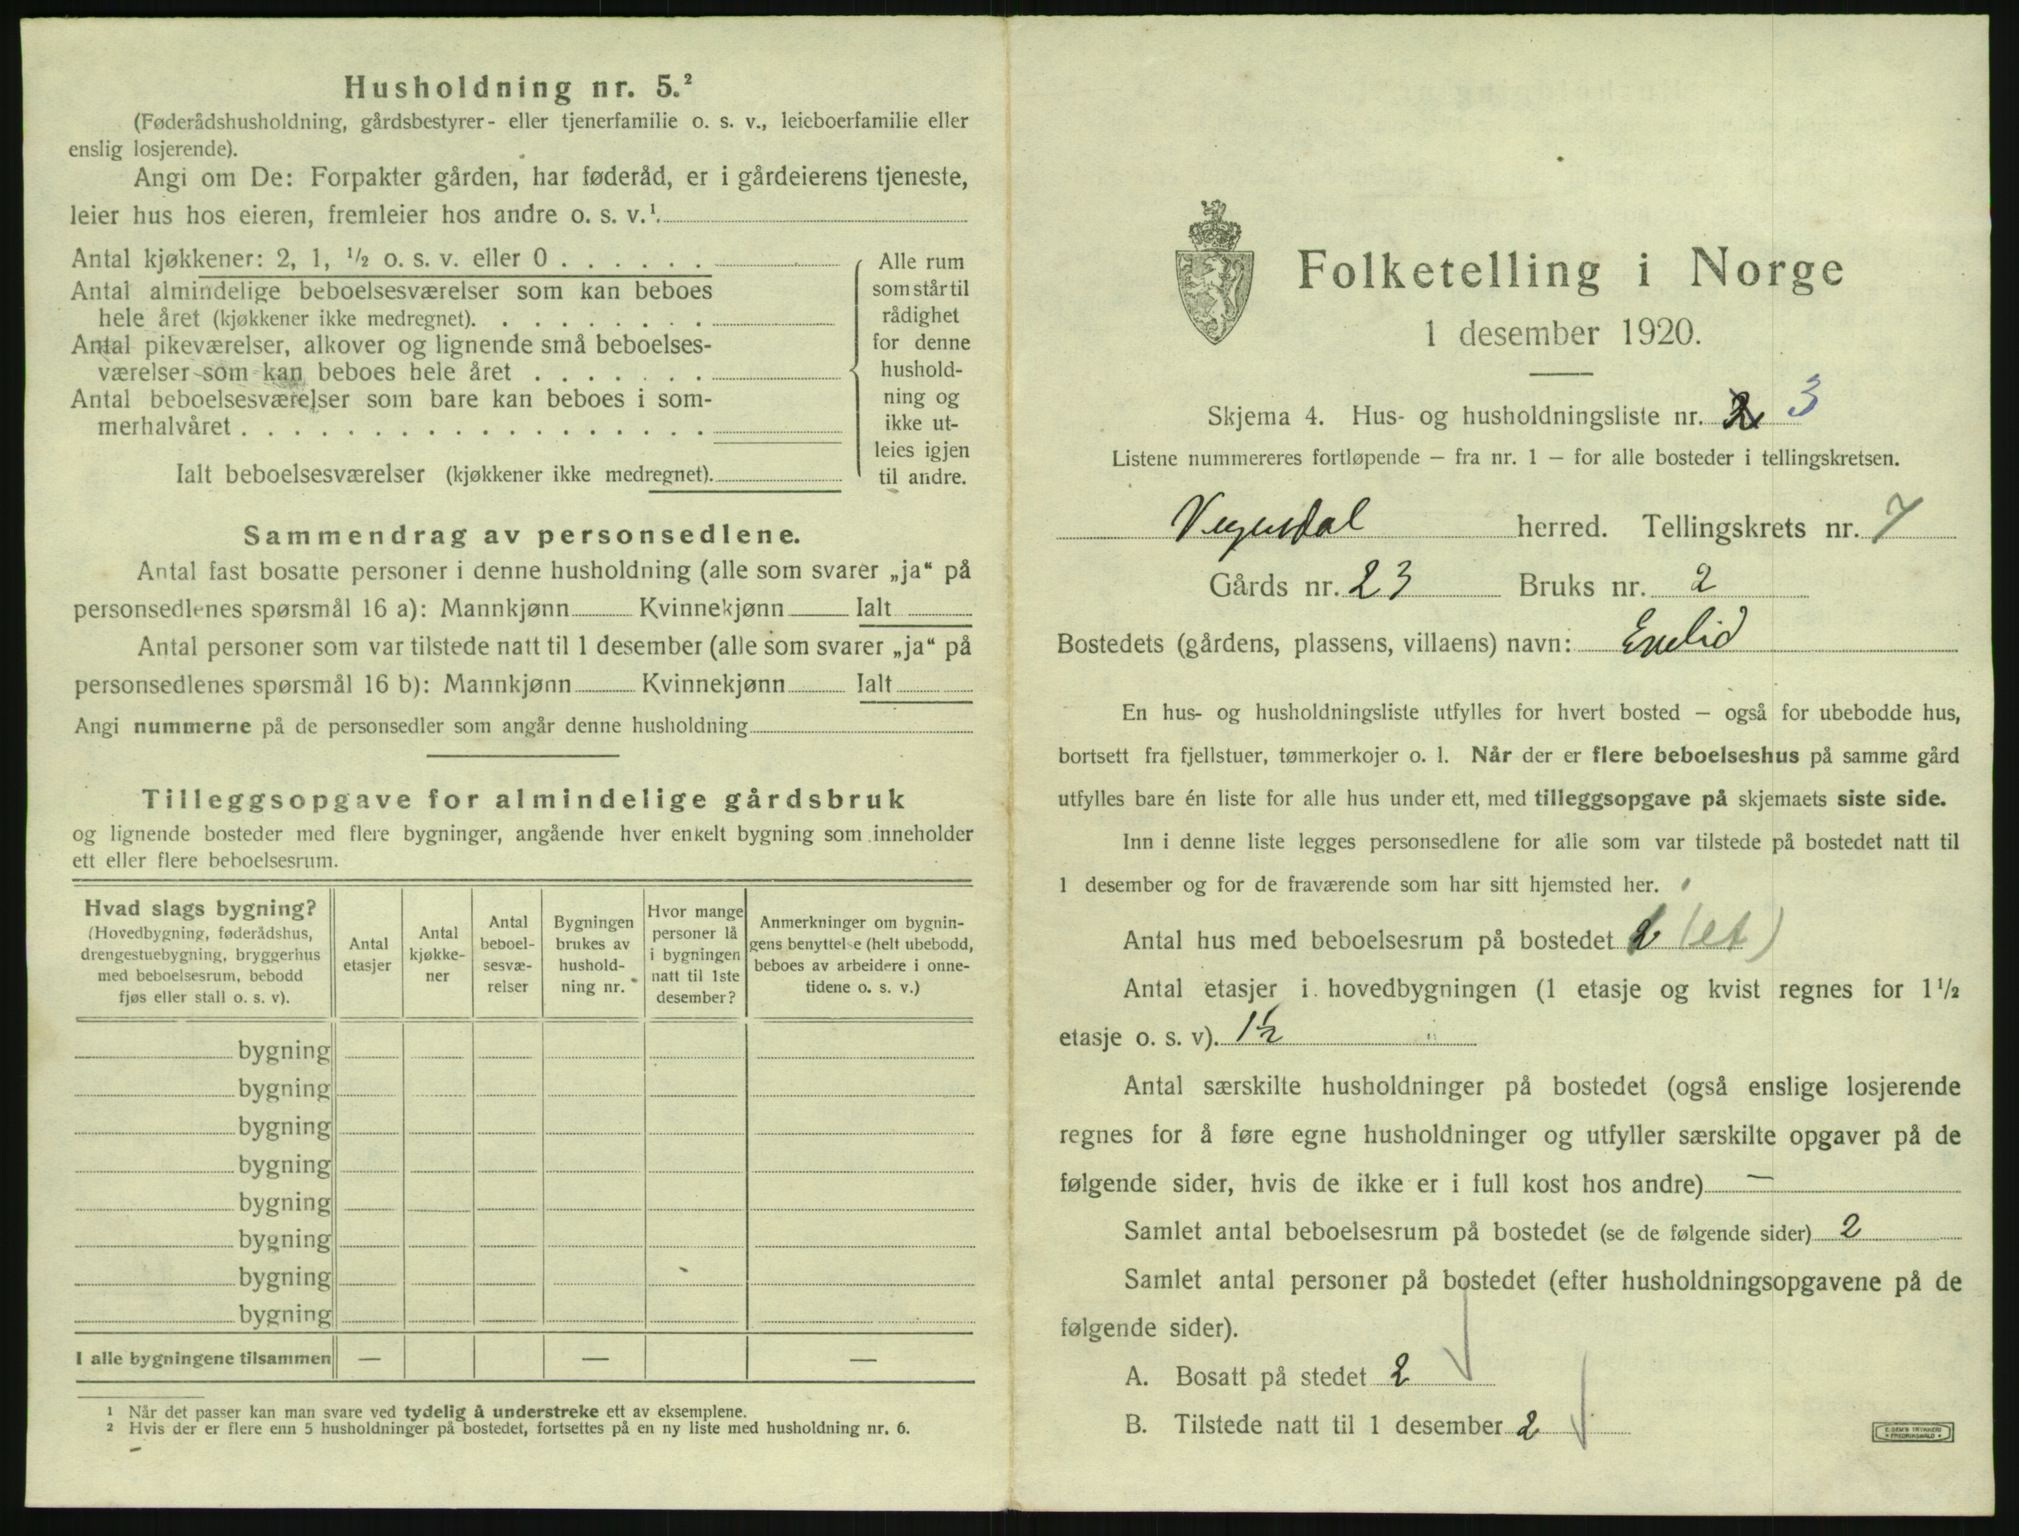 Husholdning nr. 5.²
(Føderådshusholdning, gårdsbestyrer- eller tjenerfamilie o. s. v., leieboerfamilie eller
enslig losjerende).
Angi om De: Forpakter gården, har føderåd, er i gårdeierens tjeneste,
leier hus hos eieren, fremleier hos andre o. s. v.¹.
Antal kjøkkener: 2, 1, ½ o. s. v. eller 0
Antal almindelige beboelsesværelser som kan beboes
hele året (kjøkkener ikke medregnet).
Antal pikeværelser, alkover og lignende små beboelses-
værelser som kan beboes hele året
Antal beboelsesværelser som bare kan beboes i som-
merhalvåret
Ialt beboelsesværelser (kjøkkener ikke medregnet).
Alle rum
som står til
rådighet
for denne
hushold-
ning og
ikke ut-
leies igjen
til andre.
Sammendrag av personsedlene.
Antal fast bosatte personer i denne husholdning (alle som svarer „ja“ på
personsedlenes spørsmål 16 a): Mannkjønn Kvinnekjønn Ialt
Antal personer som var tilstede natt til 1 desember (alle som svarer „ja“ på
personsedlenes spørsmål 16 b): Mannkjønn Kvinnekjønn Ialt
Angi nummerne på de personsedler som angår denne husholdning
Tilleggsopgave for almindelige gårdsbruk
og lignende bosteder med flere bygninger, angående hver enkelt bygning som inneholder
ett eller flere beboelsesrum.
Hvad slags bygning?
(Hovedbygning, føderådshus,
drengestuebygning, bryggerhus
med beboelsesrum, bebodd
fjøs eller stall o. s. v).
Antal
etasjer
Antal
kjøkke-
ner
Antal
beboel-
sesvæ-
relser
Bygningen
brukes av
hushold-
ning nr.
Hvor mange
personer lå
i bygningen
natt til 1ste
desember?
Anmerkninger om bygnin-
gens benyttelse (helt ubebodd,
beboes av arbeidere i onne-
tidene o. s. v.)
bygning
bygning
bygning
bygning
bygning
bygning
bygning
bygning
I alle bygningene tilsammen — — —
¹ Når det passer kan man svare ved tydelig å understreke ett av eksemplene.
² Hvis der er flere enn 5 husholdninger på bostedet, fortsettes på en ny liste med husholdning nr. 6.
Folketelling i Norge
1 desember 1920.
Skjema 4. Hus- og husholdningsliste nr. 2 3
Listene nummereres fortløpende – fra nr. 1 – for alle bosteder i tellingskretsen.
Vegusdal herred. Tellingskrets nr. 7
Gårds nr. 23 Bruks nr. 2
Bostedets (gårdens, plassens, villaens) navn:
En hus- og husholdningsliste utfylles for hvert bosted – også for ubebodde hus,
bortsett fra fjellstuer, tømmerkojer o. l. Når der er flere beboelseshus på samme gård
utfylles bare én liste for alle hus under ett, med tilleggsopgave på skjemaets siste side.
Inn i denne liste legges personsedlene for alle som var tilstede på bostedet natt til
1 desember og for de fraværende som har sitt hjemsted her.
Antal hus med beboelsesrum på bostedet 1 (et)
Antal etasjer i hovedbygningen (1 etasje og kvist regnes for 1½
etasje o. s. v). 1½
Antal særskilte husholdninger på bostedet (også enslige losjerende
regnes for å føre egne husholdninger og utfyller særskilte opgaver på de
følgende sider, hvis de ikke er i full kost hos andre) —
Samlet antal beboelsesrum på bostedet (se de følgende sider) 2
Samlet antal personer på bostedet (efter husholdningsopgavene på de
følgende sider).
A. Bosatt på stedet 2
B. Tilstede natt til 1 desember 2